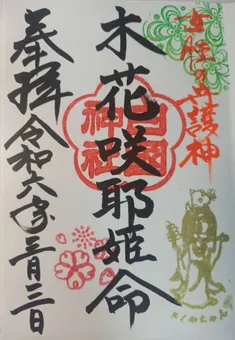 女性の守護神
木花咲耶姫命
奉拝令和六年三月三日